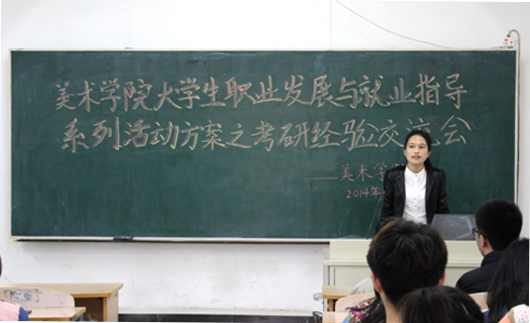 美术学院大学生职业发展与就业指导
系列活动方案之考研经验交流会
——美术学
2014年